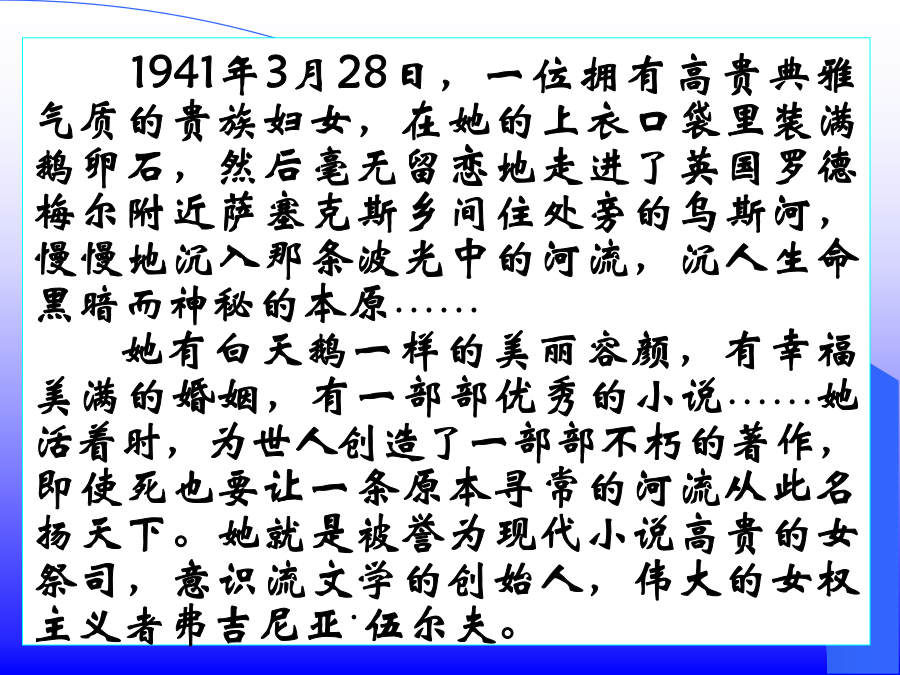 1941年3月28日，一位拥有高贵典雅
气质的贵族妇女，在她的上衣口袋里装满
鹅卵石，然后毫无留恋地走进了英国罗德
梅尔附近萨塞克斯乡间住处旁的乌斯河，
慢慢地沉入那条波光中的河流，沉人生命
黑暗而神秘的本原……
她有白天鹅一样的美丽容颜，有幸福
美满的婚姻，有一部部优秀的小说……她
活着时，为世人创造了一部部不朽的著作，
即使死也要让一条原本寻常的河流从此名
扬天下。她就是被誉为现代小说高贵的女
祭司，意识流文学的创始人，伟大的女权
主义者弗吉尼亚·伍尔夫。